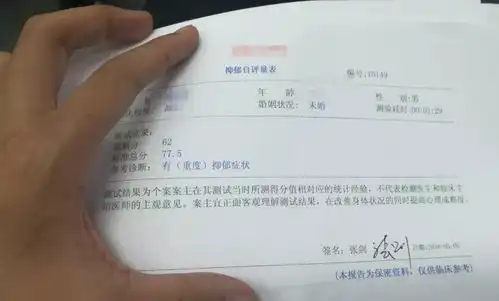 抑郁自评量表
编号:
年 龄
性 别:男
婚姻状况: 未婚
测验耗时:00:01:29
62
总分 77.5
参考诊断: 有(重度)抑郁症状
测试结果为个案案主在其测试当时所测得分值相对应的统计经验,不代表检测医生和临床主
治医师的主观意见。案主宜正面客观理解测试结果,在改善身体状况的同时提高心理成熟度。
签名:张剑
日期:
(本报告为保密资料,仅供临床参考)